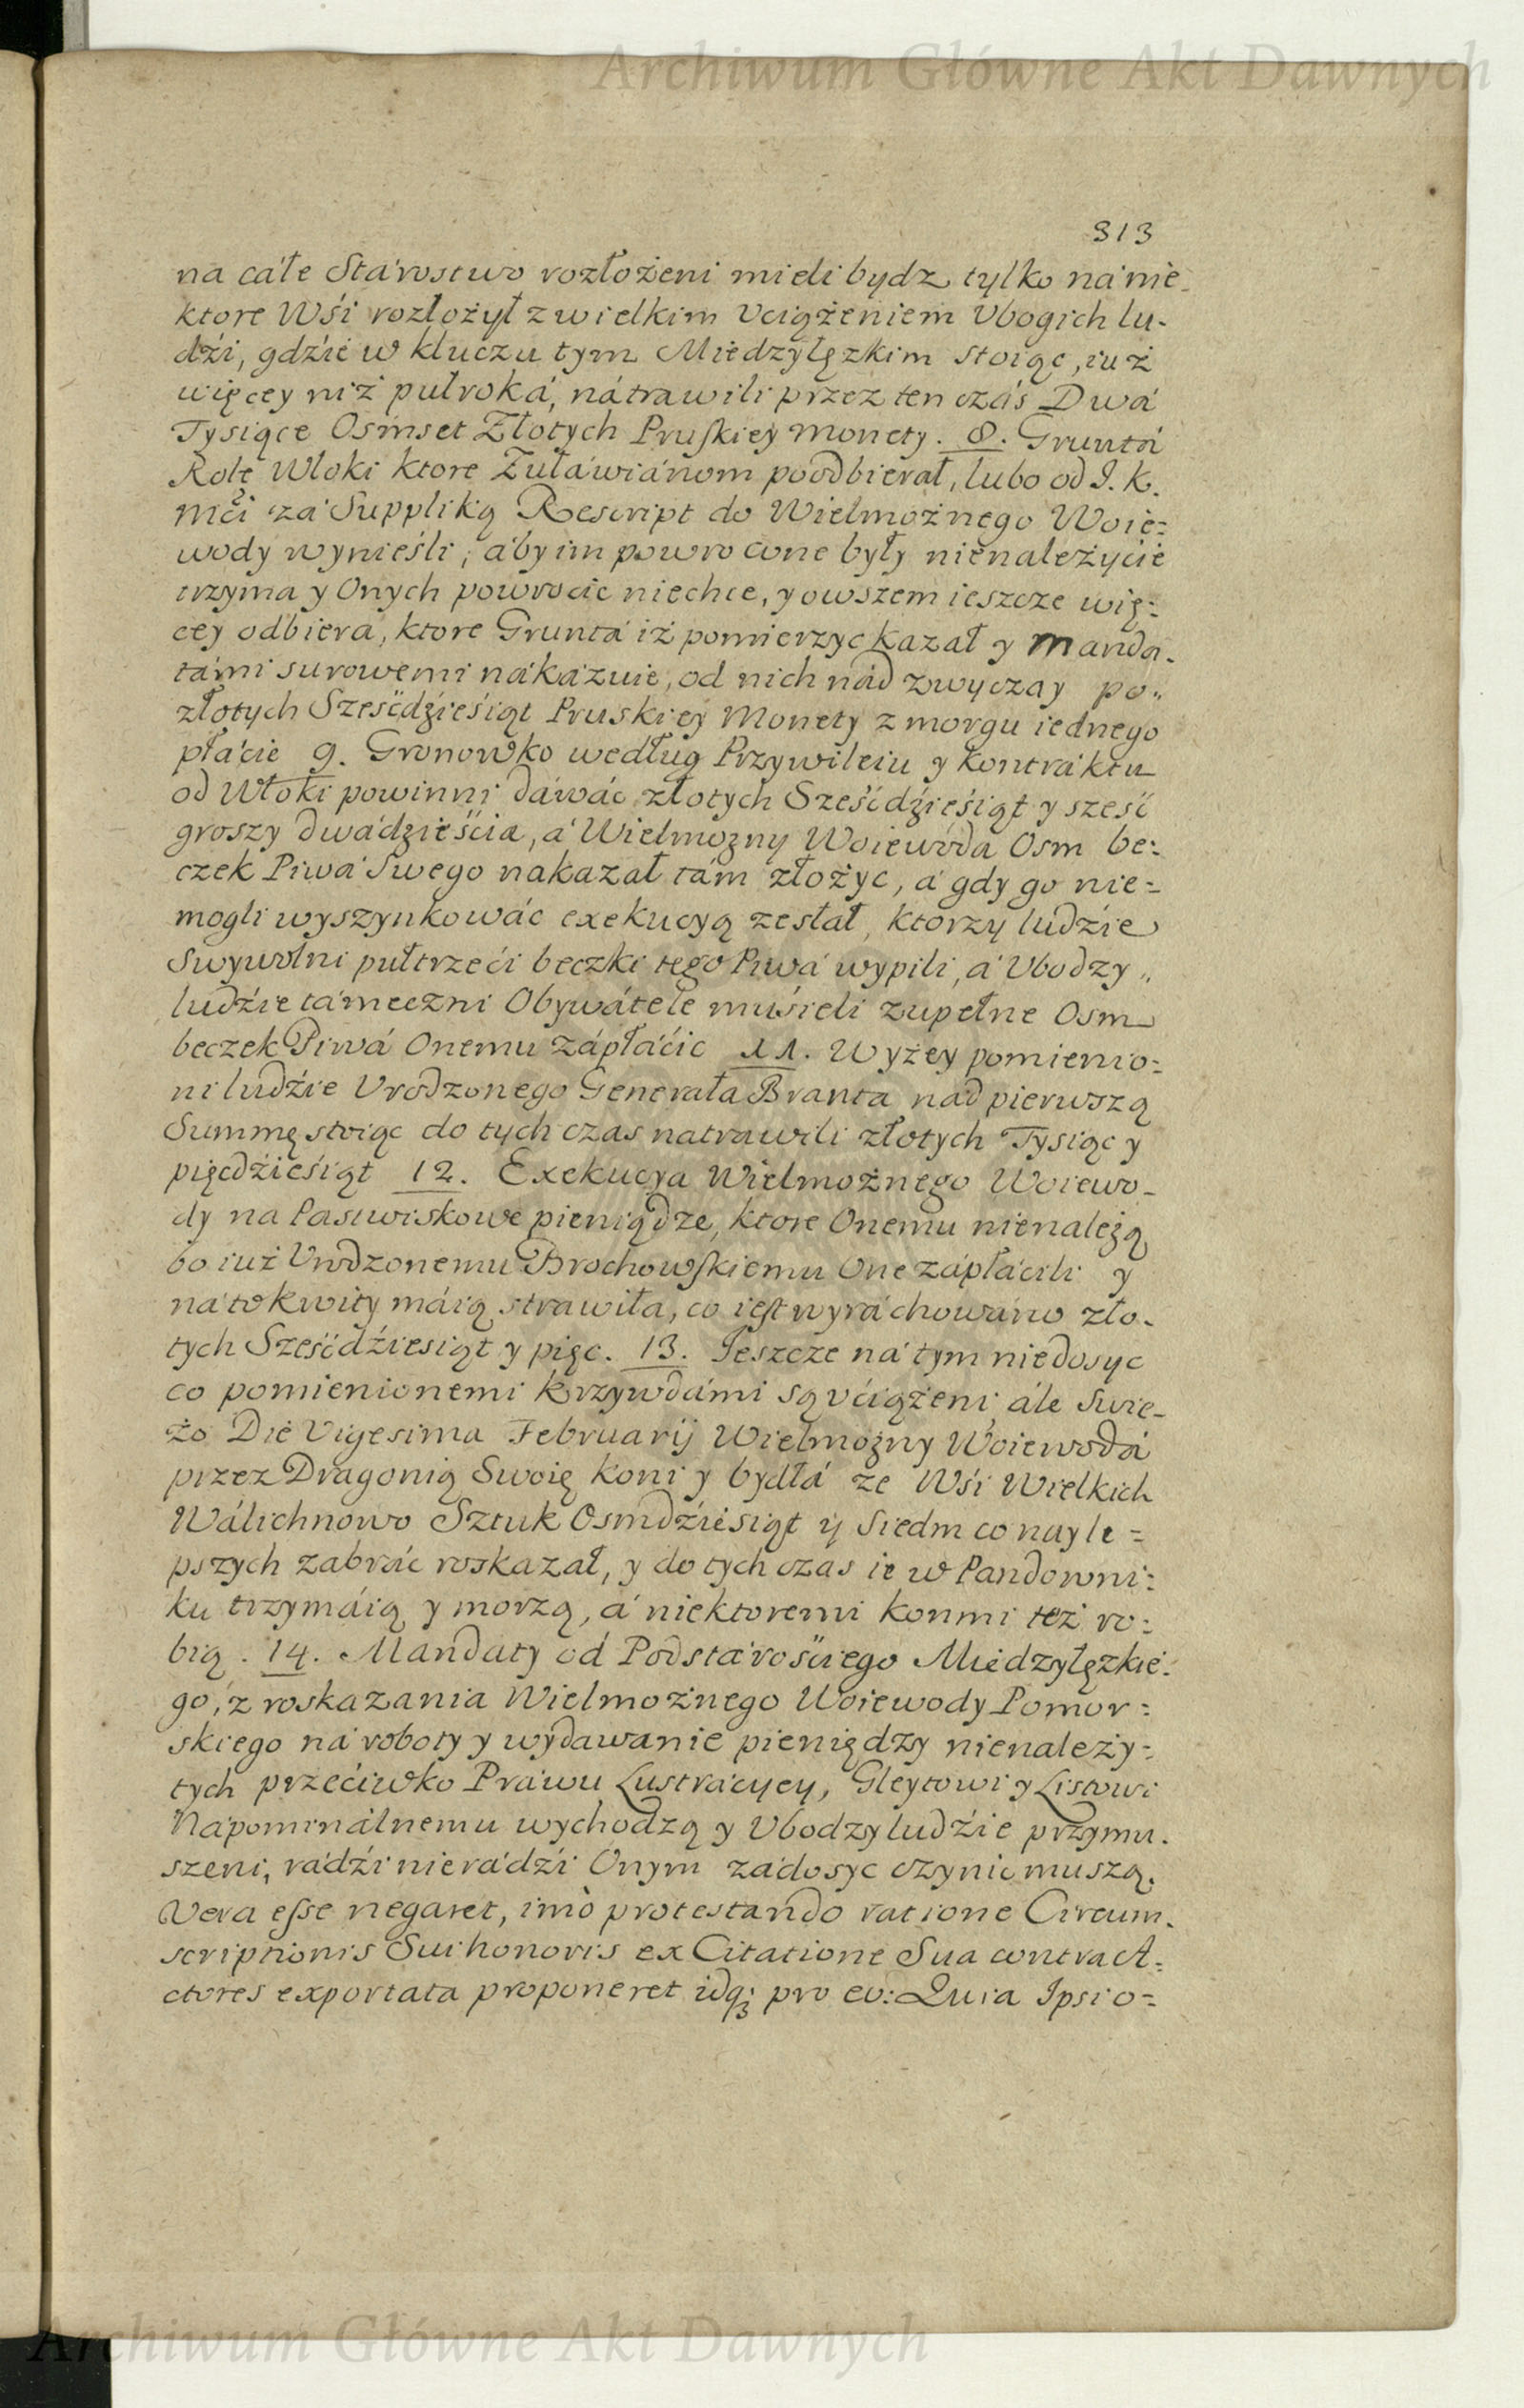 Archiwum Główne Akt Dawnych
313
na całe Stárostwo rozłożeni mieli bydz tylko ná nie-
ktore Wśi rozłożył z wielkim Vciążeniem Vbogich lu-
dźi, gdźie w kluczu tym Miedzyłęzkim stoiąc, iuż
więcey niż pułroká, nátrawili przez ten czás Dwá
Tysiące Osmset Złotych Pruskiey Monety. 8. Gruntá
Rolę Włoki ktore Żułáwiánom poodbierał, lubo od J. K.
Mći zá Suppliką Rescript do Wielmożnego Woie=
wody wynieśli, áby im powrocone były nienależycie
trzyma y Onych powrocic niechce, y owszem ieszcze wię=
cey odbiera, ktore Gruntá iż pomierzyc kazał y Manda-
támi surowemi nákázuie, od nich nád zwyczay po„
złotych Sześćdźieśiąt Pruskiey Monety z morgu iednego
płácic 9. Gronowko według Przywileiu y Kontráktu
od Włoki powinni dáwác złotych Sześćdźieśiąt y sześć
groszy dwádźieścia, á Wielmożny Woiewodá Osm be=
czek Piwá Swego nakazał tám złożyc, á gdy go nie=
mogli wyszynkowác exekucyą zesłał, ktorzy ludźie
Swywolni pułtrzeći beczki tego Piwá wypili, á Vbodzy„
ludźie támeczni Obywátele muśieli zupełne Osm
beczek Piwá Onemu zápłáćic 11. Wyżey pomienio=
ni ludźie Vrodzonego Generała Branta nad pierwszą
Summę stoiąc do tych czas natrawili złotych Tysiąc y
pięcdźieśiąt 12. Exekucya Wielmożnego Woiewo-
dy na Pastwiskowe pieniądze, ktore Onemu nienależą
bo iuż Vrodzonemu Brochowskiemu One zápłácili y
ná to kwity máią strawiła, co iest wyráchowáno zło-
tych Sześćdźiesiąt y pięc. 13. Jeszcze ná tym niedosyc
co pomienionemi krzywdámi są vćiążeni ále Swie-
żo Die Vigesima Februarij Wielmożny Woiewodá
przez Dragonią Swoię koni y bydłá ze Wśi Wielkich
Wálichnowo Sztuk Osmdźiesiąt ÿ Siedm co nayle=
pszych zabrác roskazał, y do tych czas ie w Pandowni=
ku trzymáią y morzą, á niektoremi konmi też ro=
bią. 14. Mandaty od Podstárośćiego Miedzyłęzkie=
go, z roskazania Wielmożnego Woiewody Pomor=
skiego ná roboty y wydawanie pieniędzy nienależy=
tych przećiwko Práwu Lustrácyey, Gleytowi y Listowi
Nápominálnemu wychodzą y Vbodzy ludźie przymu-
szeni, rádźi nierádźi Onym zádosyc czynic muszą.
Vera esse negaret, imò protestando ratione Circum-
scriptionis Sui honoris ex Citatione Sua contra A=
ctores exportata proponeret idq; pro eo: Quia Ipsio=
Archiwum Główne Akt Dawnych